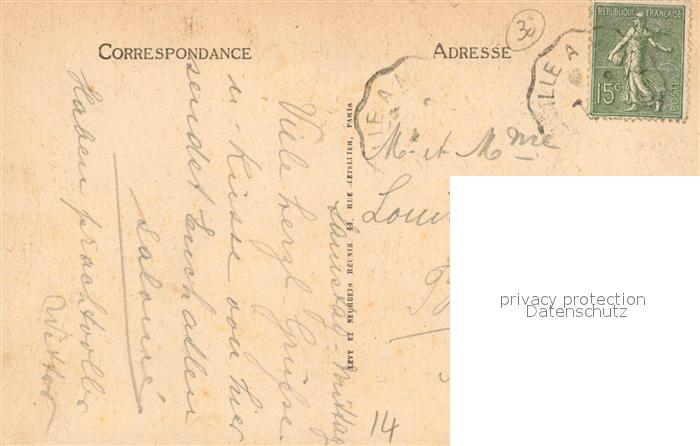 CORRESPONDANCE
ADRESSE
30
REPUBLIQUE FRANÇAISE
15c
POSTES
ILLE A
LEVY ET NEURDEIN REUNIS, 44, RUE LETELLIER, PARIS
Samstag-Mittag
Viele herzl. Grüsse
u. Küsse von hier
sendet Euch allen
Salomé
Haben prachtvolles
Wetter
Mr et Mme
Loui
14
privacy protection
Datenschutz